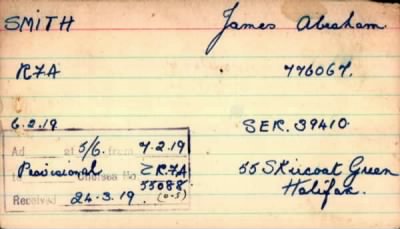 SMITH James Abraham
RFA 776067.
6.2.19 SER. 39410
Ad at 5/6. from 7.2.19
Provisional Chelsea No. Z RFA 55088
(0-5)
Received 24.3.19.
55 Skircoat Green
Halifax.